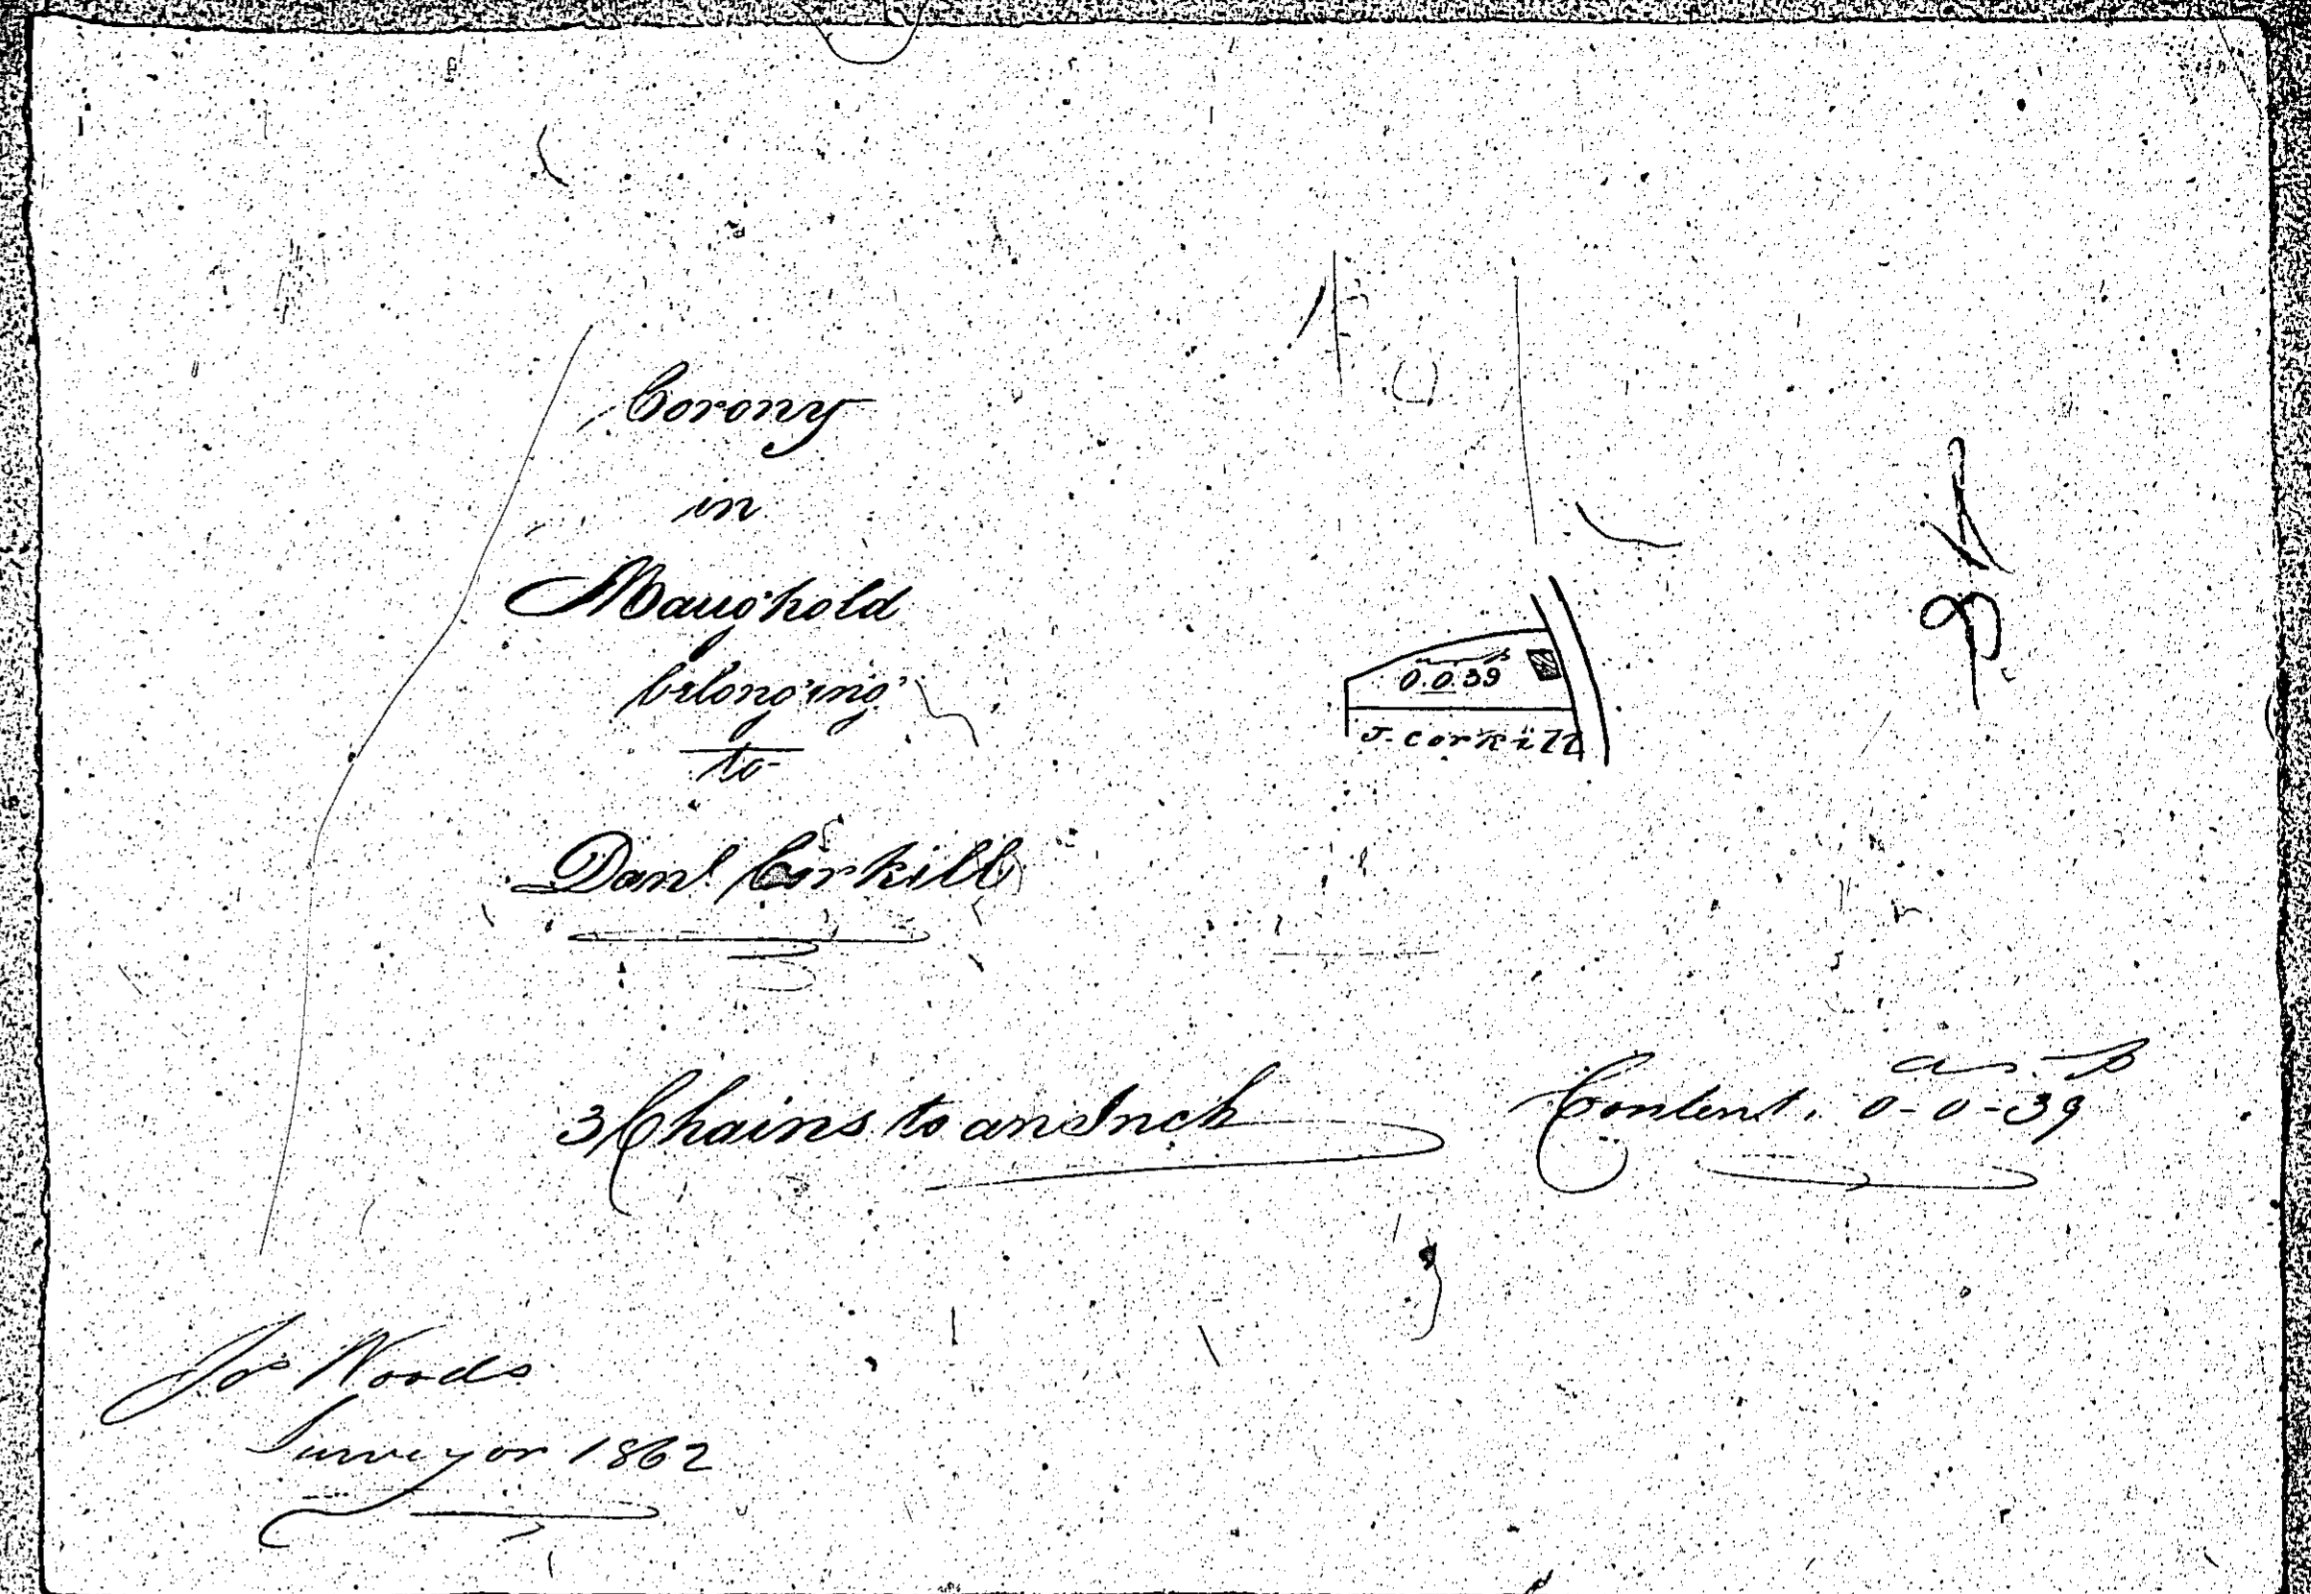 Corony
in
Maughold
belonging
to
Danl. Corkill
a r p
0.0.39
J. Corkill
3 Chains to an Inch
Content. a r p
0-0-39
Jos Woods
Surveyor 1862